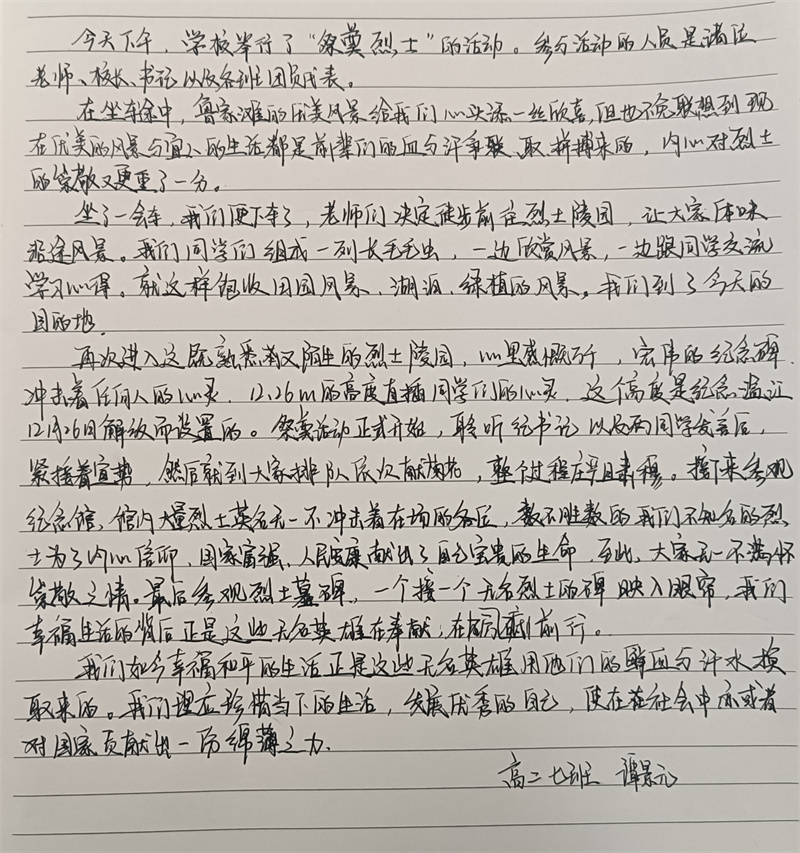 今天下午，学校举行了“祭奠烈士”的活动。参与活动的人员是诸位
老师、校长、书记以及各班团员代表。
在坐车途中，鲁家滩的优美风景给我们心头添一丝欣喜，但也不免联想到现
在优美的风景与宜人的生活都是前辈们的血与汗争取、拼搏来的，内心对烈士
的崇敬又更重了一分。
坐了一会车，我们便下车了，老师们决定徒步前往烈士陵园，让大家体味
沿途风景。我们同学们组成一列长毛毛虫，一边欣赏风景，一边跟同学交流
学习心得。就这样饱收田园风景，湖泊，绿植的风景。我们到了今天的
目的地.
再次进入这既熟悉有又陌生的烈士陵园，心里感慨万千，宏伟的纪念碑
冲击着任何人的心灵，12.26m的高度直插同学们的心灵，这个高度是纪念
12月26日解放而设置的。祭奠活动正式开始，聆听纪书记以及两同学发言后，
紧接着宣势，然后就到大家排队依次献菊花，整个过程庄严且肃穆。接下来参观
纪念馆，馆内大量烈士英名无一不冲击着在场的各位，数不胜数的我们不知名的烈
士为了内心信仰，国家富强、人民安康献出了自己宝贵的生命，至此，大家无一不满怀
崇敬之情。最后参观烈士墓碑，一个接一个无名烈士的碑映入眼帘，我们
幸福生活的背后正是这些无名英雄在奉献，在前行。
我们如今幸福和平的生活正是这些无名英雄用他们的鲜血与汗水换
取来的。我们理应珍惜当下的生活，发展优秀的自己，使在在社会中亦或者
对国家贡献出一份绵薄之力.
高二七班 谭景元